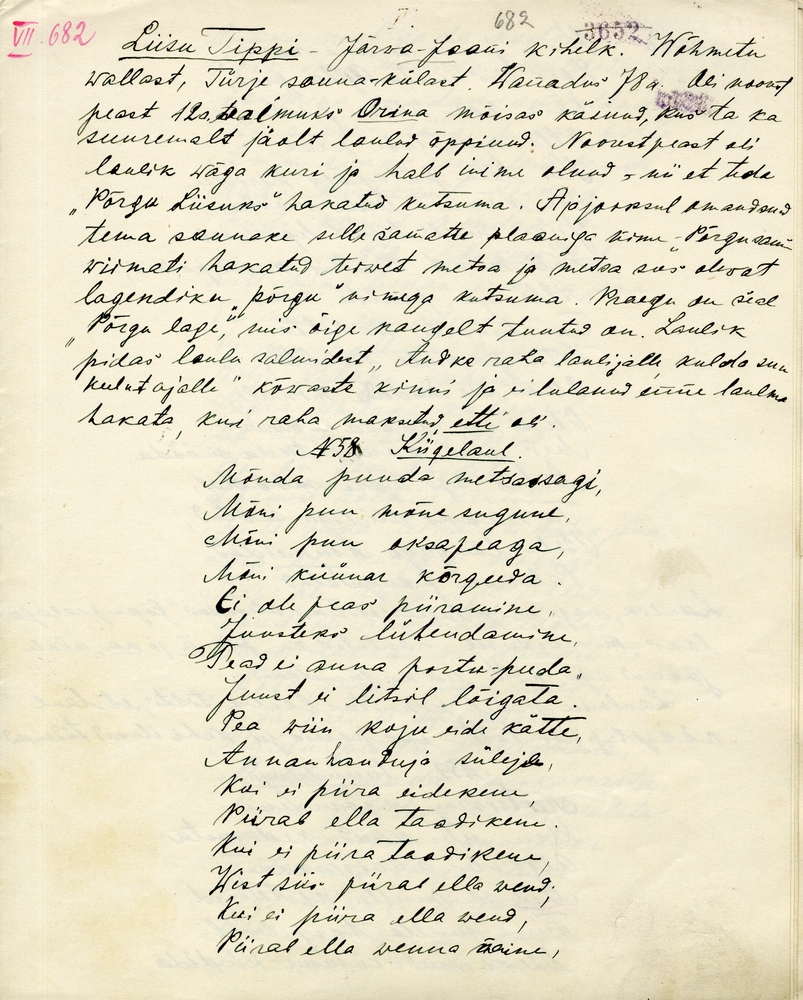 VII 682
682
3652
Liisu Tippi - Järva-Jaani kihelk. Wõhmetu
wallast, Türje sauna-külast. Wanadus 78 a. Oli noorest
peast 12 a. talmuks Orina mõisas käinud, kus ta ka
suuremalt jäolt laulud õppinud. Noorestpeast oli
laulik wäga kuri ja halb inime olnud, nii et teda
„Põrgu Liisuks" hakatud kutsuma. Ajajooksul omandanud
tema saunake selle samatse plaaniga nime „Põrgusaun
wiimati hakatud terwet metsa ja metsa sus olewat
lagendiku „põrgu" nimega kutsuma. Praegu on seal
„Põrgu lage", mis õige kaugelt tuntud on. Laulik
pidas laulu salmidest „Andke raha laulijalle, kulda suu
keelutajalle" kõwaste kinni ja ei lulanud enne laulma
hakata, kui raha maksetud ette oli.
№ 58 Kiigelaul.
Mõnda puuda metsassagi,
Mõni puu mõne sugune,
Mõni puu oksapeaga,
Mõni küünar kõrgeeda.
Ei ole peas piiramine,
Juusteks lühendamine,
Pead ei anna portu-puda,
Juust ei litsil lõigata.
Pea wiin koju eide kätte,
Annan handuja süleje,
Kui ei piira eidekene,
Piirab ella taadikene.
Kui ei piira taadikene,
West siis piirab ella wend;
Kui ei piira ella wend,
Piirab ella wenna naine,